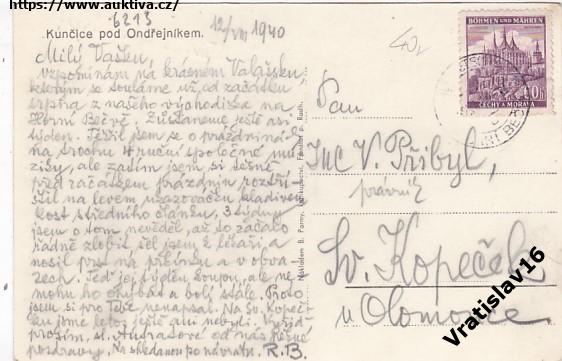 https://www.auktiva.cz/
6213
12/VIII 1940
Kunčice pod Ondřejníkem.
40,-
BÖHMEN UND MÄHREN
60h
ČECHY A MORAVA
Milý Vašku,
vzpomínám na krásném Valašsku
kterým se touláme už od začátku
srpna z našeho východiska na
Horní Bečvě. Zůstaneme ještě asi
týden. Těšil jsem se o prázdninách
na trochu 4 ruční společné mu-
ziky, ale zatím jsem si těsně
před začátkem prázdnin roztří-
štil na levém ukazováčku
kost středního článku, 3 týdny
jsem o tom nevěděl, až to začalo
řádně zlobit šel jsem k lékaři a
nosil prst na prkénku a v obva-
zech. Teď jej týden koupu, ale ne-
mohu ho ohýbat a bolí stále. Proto
jsem si pro Tebe nenapsal. Na Sv. Kopeč-
ku jsme letos ještě ani nebyli. Vyřiď
prosím, sl. od nás
pozdravy. Na shledanou po návratu. R.B.
Nákladem B.
Pan
Ing V. Přibyl,
právník
Sv. Kopeček
u Olomouce
Vratislav16